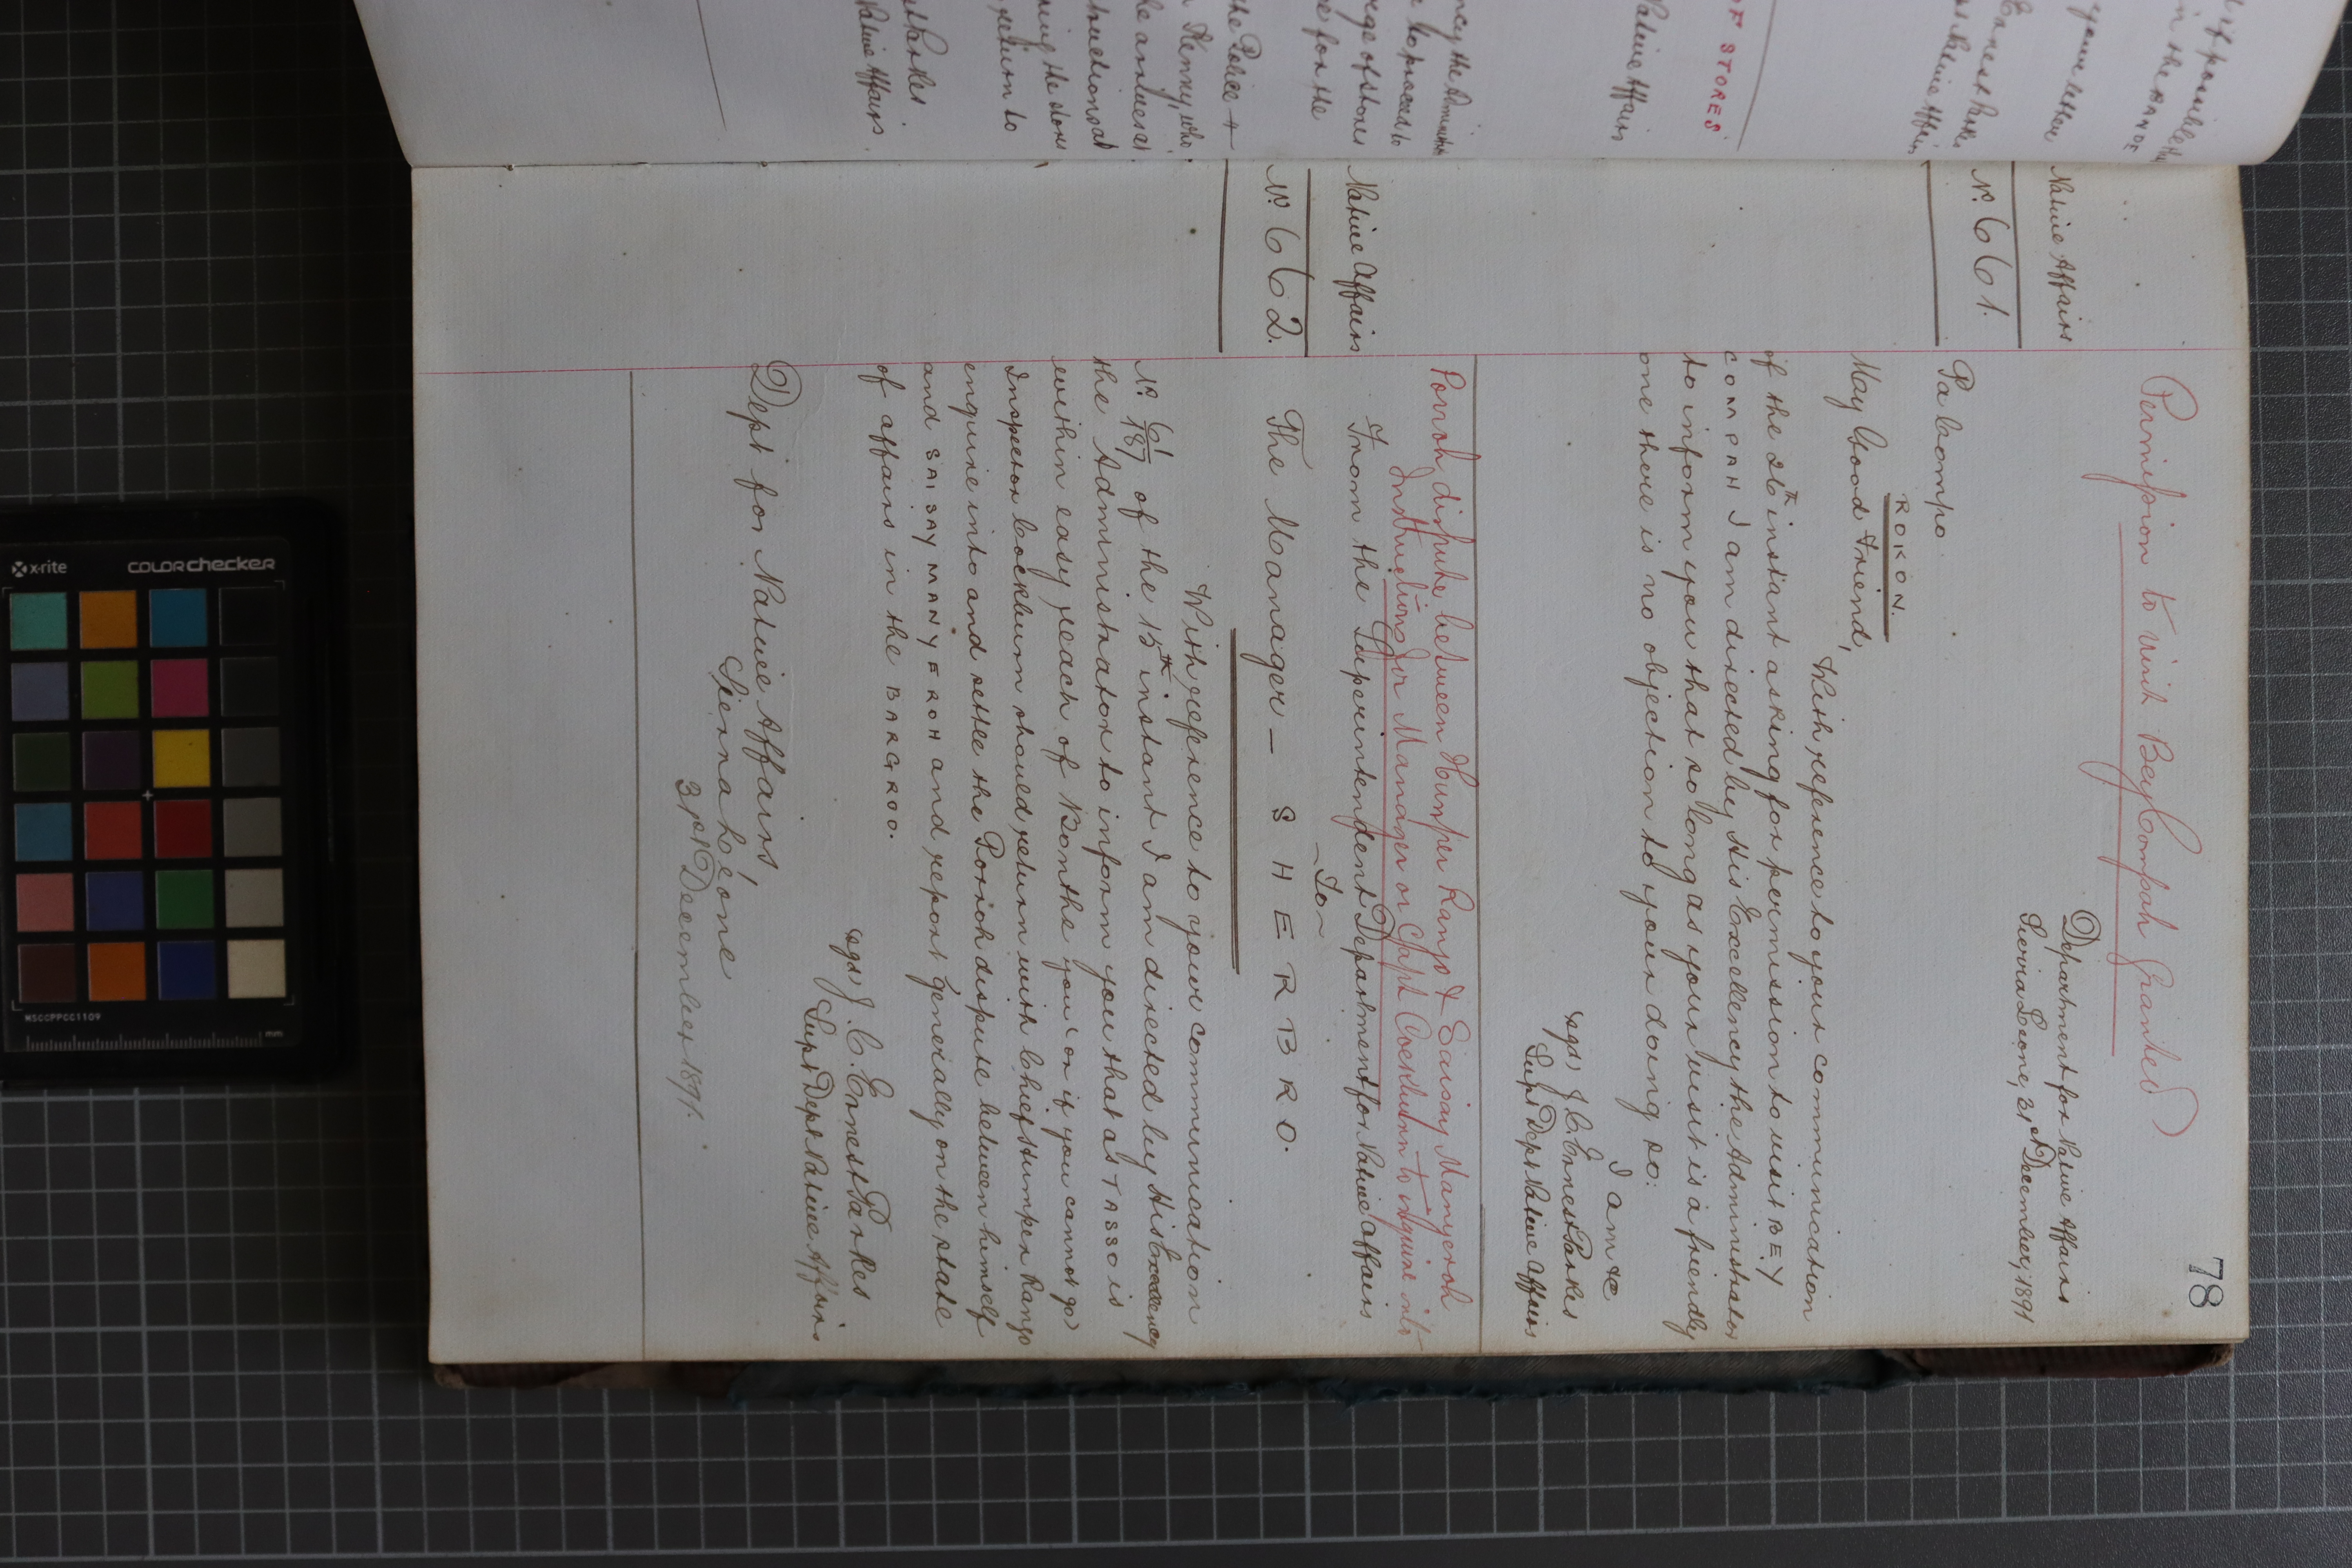 78
Permission to visit Bey Compah Granted
Native Affairs
Department for Native Affairs
Sierra Leone, 31st December, 1891
No. 661.
Pa Compo.
ROKON.
May Good Friend,
With reference to your communication
of the 26th instant asking for permission to visit BEY
COMPAH I am directed by His Excellency the Administrator
to inform you that so long as your visit is a friendly
one there is no objection to your doing so.
I am &c
sgd, J. C. Ernest Parkes
Supt Dept Native Affairs
Porroh dispute between Humper Rango & Saisay Manyeroh
Instructions for Manager or Capt Cockburn to inquire into
Native Affairs
From the Superintendent Department for Native Affairs
-To-
No. 662.
The Manager— SHERBRO.
With reference to your communication
No. 61/187 of the 15th instant I am directed by His Excellency
the Administrator to inform you that as TASSO is
within easy reach of Bonthe you (or if you cannot go)
Inspector Cockburn should return with Chief Humper Rango
enquire into and settle the Porroh dispute between himself
and SAISAY MANYEROH and report generally on the state
of affairs in the BARGROO.
sgd, J. C. Ernest Parkes
Supt Dept Native Affairs
Dept for Native Affairs,
Sierra Leone
31st December 1891.
OF STORES
Native Affairs
x-rite
colorchecker
MSCCPPCC1109
mm